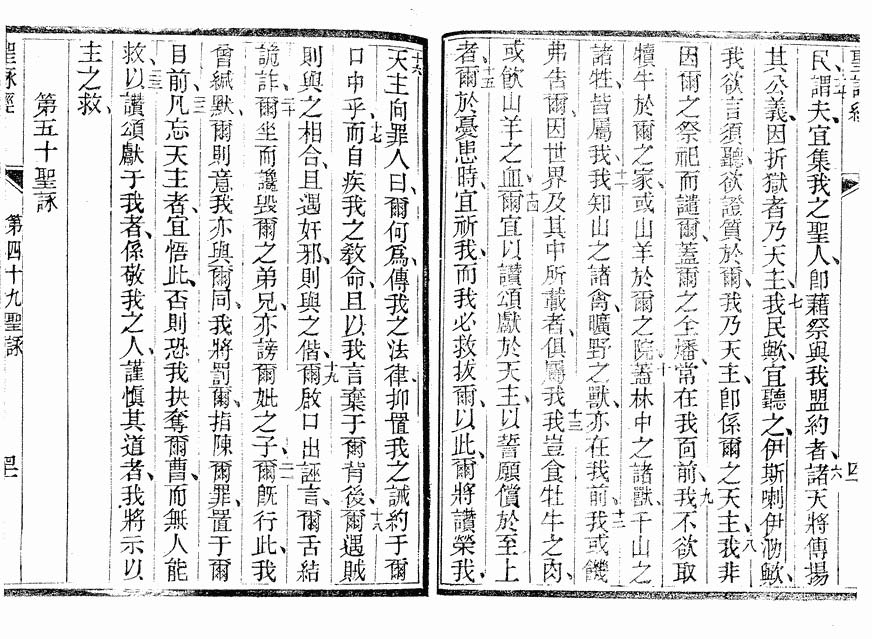 聖詠經
四一
民、謂夫、宜集我之聖人、卽藉祭與我盟約者、六諸天將傳揚
其公義、因折獄者乃天主、七我民歟、宜聽之、伊斯喇伊泐歟、
我欲言、須聽、欲證質於爾、我乃天主、卽係爾之天主、八我非
因爾之祭祀而譴爾、蓋爾之全燔常在我面前、九我不欲取
犢牛於爾之家、或山羊於爾之院、十蓋林中之諸獸、千山之
諸牲、皆屬我、十一我知山之諸禽、曠野之獸、亦在我前、十二我或饑、
弗告爾、因世界及其中所載者、俱屬我、十三我豈食牡牛之肉、
或飲山羊之血、十四爾宜以讚頌獻於天主、以誓願償於至上
者、十五爾於憂患時、宜祈我、而我必救拔爾、以此、爾將讚榮我、
十六天主向罪人曰、爾何爲傳我之法律、抑置我之誡約于爾
口中乎、十七而自疾我之敎命、且以我言棄于爾背後、十八爾遇賊
則與之相合、且遇奸邪、則與之偕、十九爾啟口出誣言、爾舌結
詭詐、二十爾坐而讒毀爾之弟兄、亦謗爾妣之子、二一爾旣行此、我
曾緘默、爾則意我亦與爾同、我將罰爾、指陳爾罪、置于爾
目前、二二凡忘天主者、宜悟此、否則恐我抉奪爾曹、而無人能
救、二三以讚頌獻于我者、係敬我之人、謹愼其道者、我將示以
主之救、
第五十聖詠
聖詠經
第四十九聖詠
四二